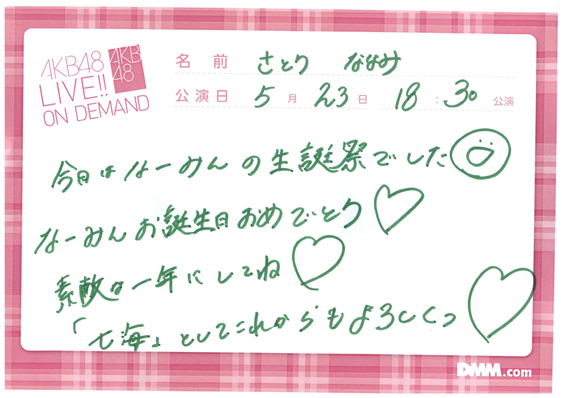 AKB48
LIVE!!
ON DEMAND
AKB
48
名前 さとり ななみ
公演日 5月23日 18:30公演
今日はなーみんの生誕祭でした
なーみんお誕生日おめでとう
素敵な一年にしてね
「七海」としてこれからもよろしくっ
DMM.com